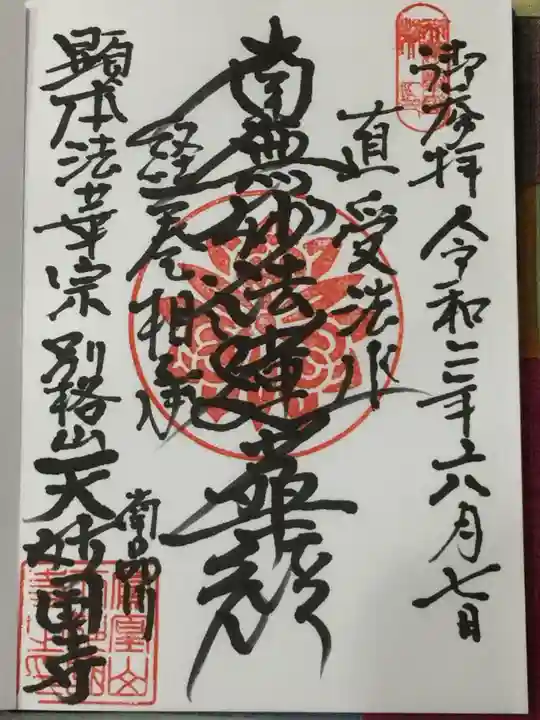 御参拝 令和三年六八月七日
直受法水
南無妙法蓮華経
経巻相承
南品川
顕本法華宗 別格山天妙国寺